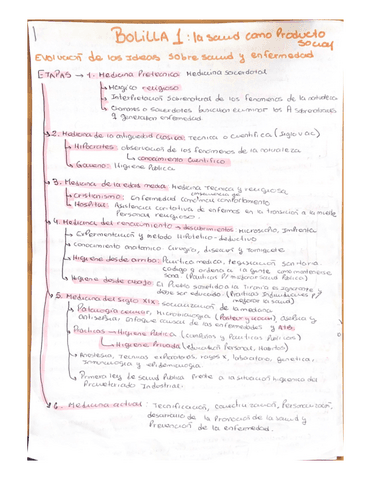 BOLILLA 1: la salud como Producto
social
EVOLUCIÓN de las Ideas sobre salud y enfermedad
ETAPAS → 1. Medicina Pretecnica: Medicina sacerdotal
↳ Magico religioso
↳ Interpretación sobrenatural de los fenomenos de la naturaleza
↳ Chamanes o sacerdotes buscaban eliminar los A sobrenaturales
q generaban enfermedad
→ 2. Medicina de la antiguedad clásica: Tecnica o cientifica (siglo V ac)
↳ Hipocrates: observación de los fenomenos de la naturaleza
↳ conocimiento cientifico
↳ Galeno: Higiene Publica
→ 3. Medicina de la edad media: Medicina Tecnica y religiosa
↳ Cristianismo: Enfermedad comportamiento
↳ Hospital: Asistencia caritativa de enfermos en a transición a la muerte
Personal religioso.
→ 4. Medicina del renacimiento → descubrimientos Microscopio, Imprenta
↳ Experimentación y metodo Hipotetico-deductivo
↳ Conocimiento anatomico: Cirugia, disecar y
↳ Higiene desde arriba: Practica medica, Legislación sanitaria
codigo y ordena a la gente como mantenerse
sana. (Practicas P/ mejorar salud Publica)
↳ Higiene desde abajo: El Pueblo sometido a la tirania es ignorante y
debe ser educado. (Practicas Individuales P/
mejorar la salud)
→ 5. Medicina del Siglo XIX: Socialización de la medicina
↳ Patologia celular, Microbiologia (Pasteur y Koch), asepsia y
antisepsia. Enfoque causal de las enfermedades y
↳ Practicas → Higiene Publica (Cambios y Practicas Publicas)
↳ Higiene Privada (educación Personal, Habitos)
↳ Anestesia, Tecnicas exploratorias, rayos x, laboratorio, genetica,
Inmunologia y epidemiologia.
↳ Primera ley de salud Publica frente a la situación higienica del
Proletariado Industrial.
→ 6. Medicina actual: Tecnificación, colectivización, Personalización,
desarrollo de la Promoción de la salud y
Prevención de la enfermedad.